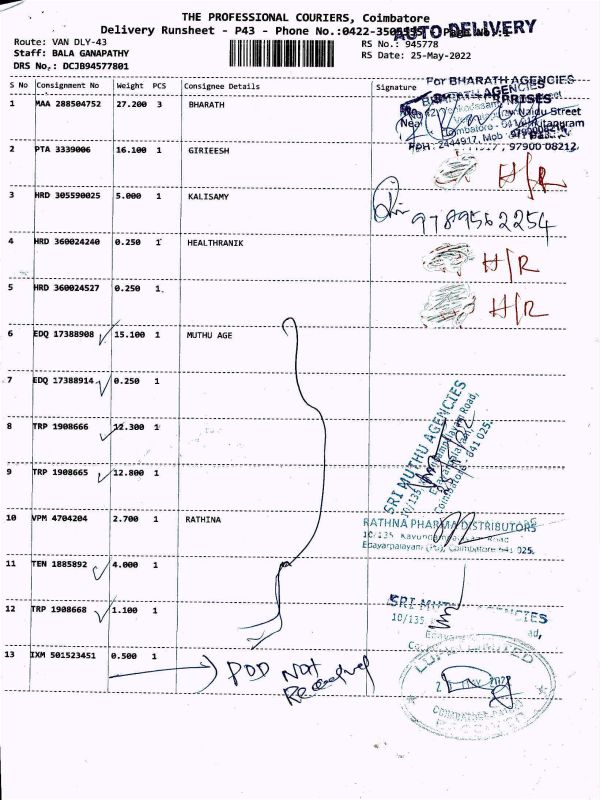 THE PROFESSIONAL COURIERS, Coimbatore
Delivery Runsheet - P43 - Phone No.:0422-
AUTO DELIVERY
Route: VAN DLY-43
RS No.: 945778
Staff: BALA GANAPATHY
RS Date: 25-May-2022
DRS No,: DCJB94577801
S No Consignment No Weight PCS Consignee Details Signature
For BHARATH AGENCIES
1 MAA 288504752 27.200 3 BHARATH
Naidu Street
97900 08212
2 PTA 3339006 16.100 1 GIRIEESH
H/R
3 HRD 305590025 5.000 1 KALISAMY
9789562254
4 HRD 360024240 0.250 1 HEALTHRANIK
H/R
5 HRD 360024527 0.250 1
H/R
6 EDQ 17388908 15.100 1 MUTHU AGE
7 EDQ 17388914 0.250 1
8 TRP 1908666 12.300 1
SRI MUTHU AGENCIES
10/135,
Coimbatore - 641 025.
9 TRP 1908665 12.800 1
10 VPM 4704204 2.700 1 RATHINA
RATHNA PHARMA DISTRIBUTORS
10/135, Kavundampalayam Road
Edayarpalayam (Po), Coimbatore 641 025.
11 TEN 1885892 4.000 1
12 TRP 1908668 1.100 1
SRI MUTHU AGENCIES
10/135
13 IXM 501523451 0.500 1
POD NOT
Received
LIMITED
2022
COIMBATORE
RECEIVED